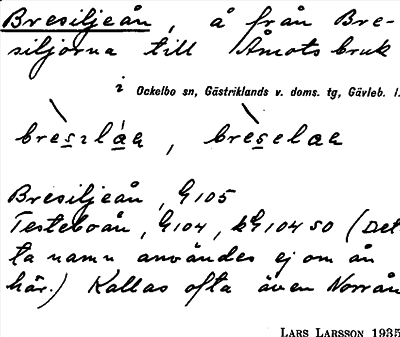 Bresiljeån, å från Bre-
siljorna till Åmots bruk
i Ockelbo sn, Gästriklands v. doms. tg, Gävleb. l.
Bresiljeån, G105
Testeboån, G104, bG104 SO (Det
ta namn användes ej om ån
här.) Kallas ofta även Norrån
LARS LARSSON 1935